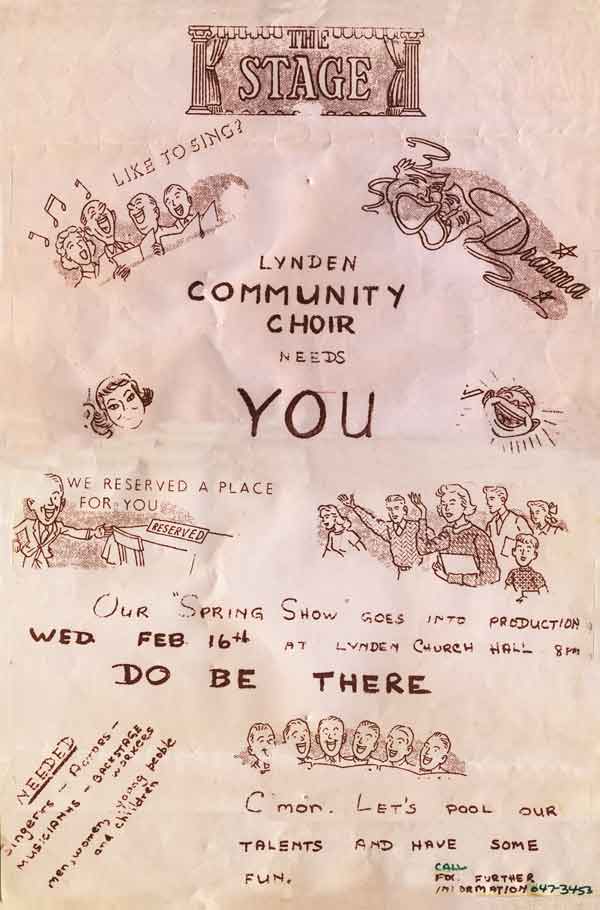 THE
STAGE
LIKE TO SING?
Drama
LYNDEN
COMMUNITY
CHOIR
NEEDS
YOU
WE RESERVED A PLACE
FOR YOU
RESERVED
OUR "SPRING SHOW" GOES INTO PRODUCTION
WED. FEB. 16th AT LYNDEN CHURCH HALL 8 PM
DO BE THERE
NEEDED
SINGERS - ACTORS -
MUSICIANS - BACKSTAGE
WORKERS
men, women, young people
and children
C'MON. LET'S POOL OUR
TALENTS AND HAVE SOME
FUN.
CALL
FOR FURTHER
INFORMATION 647-3453